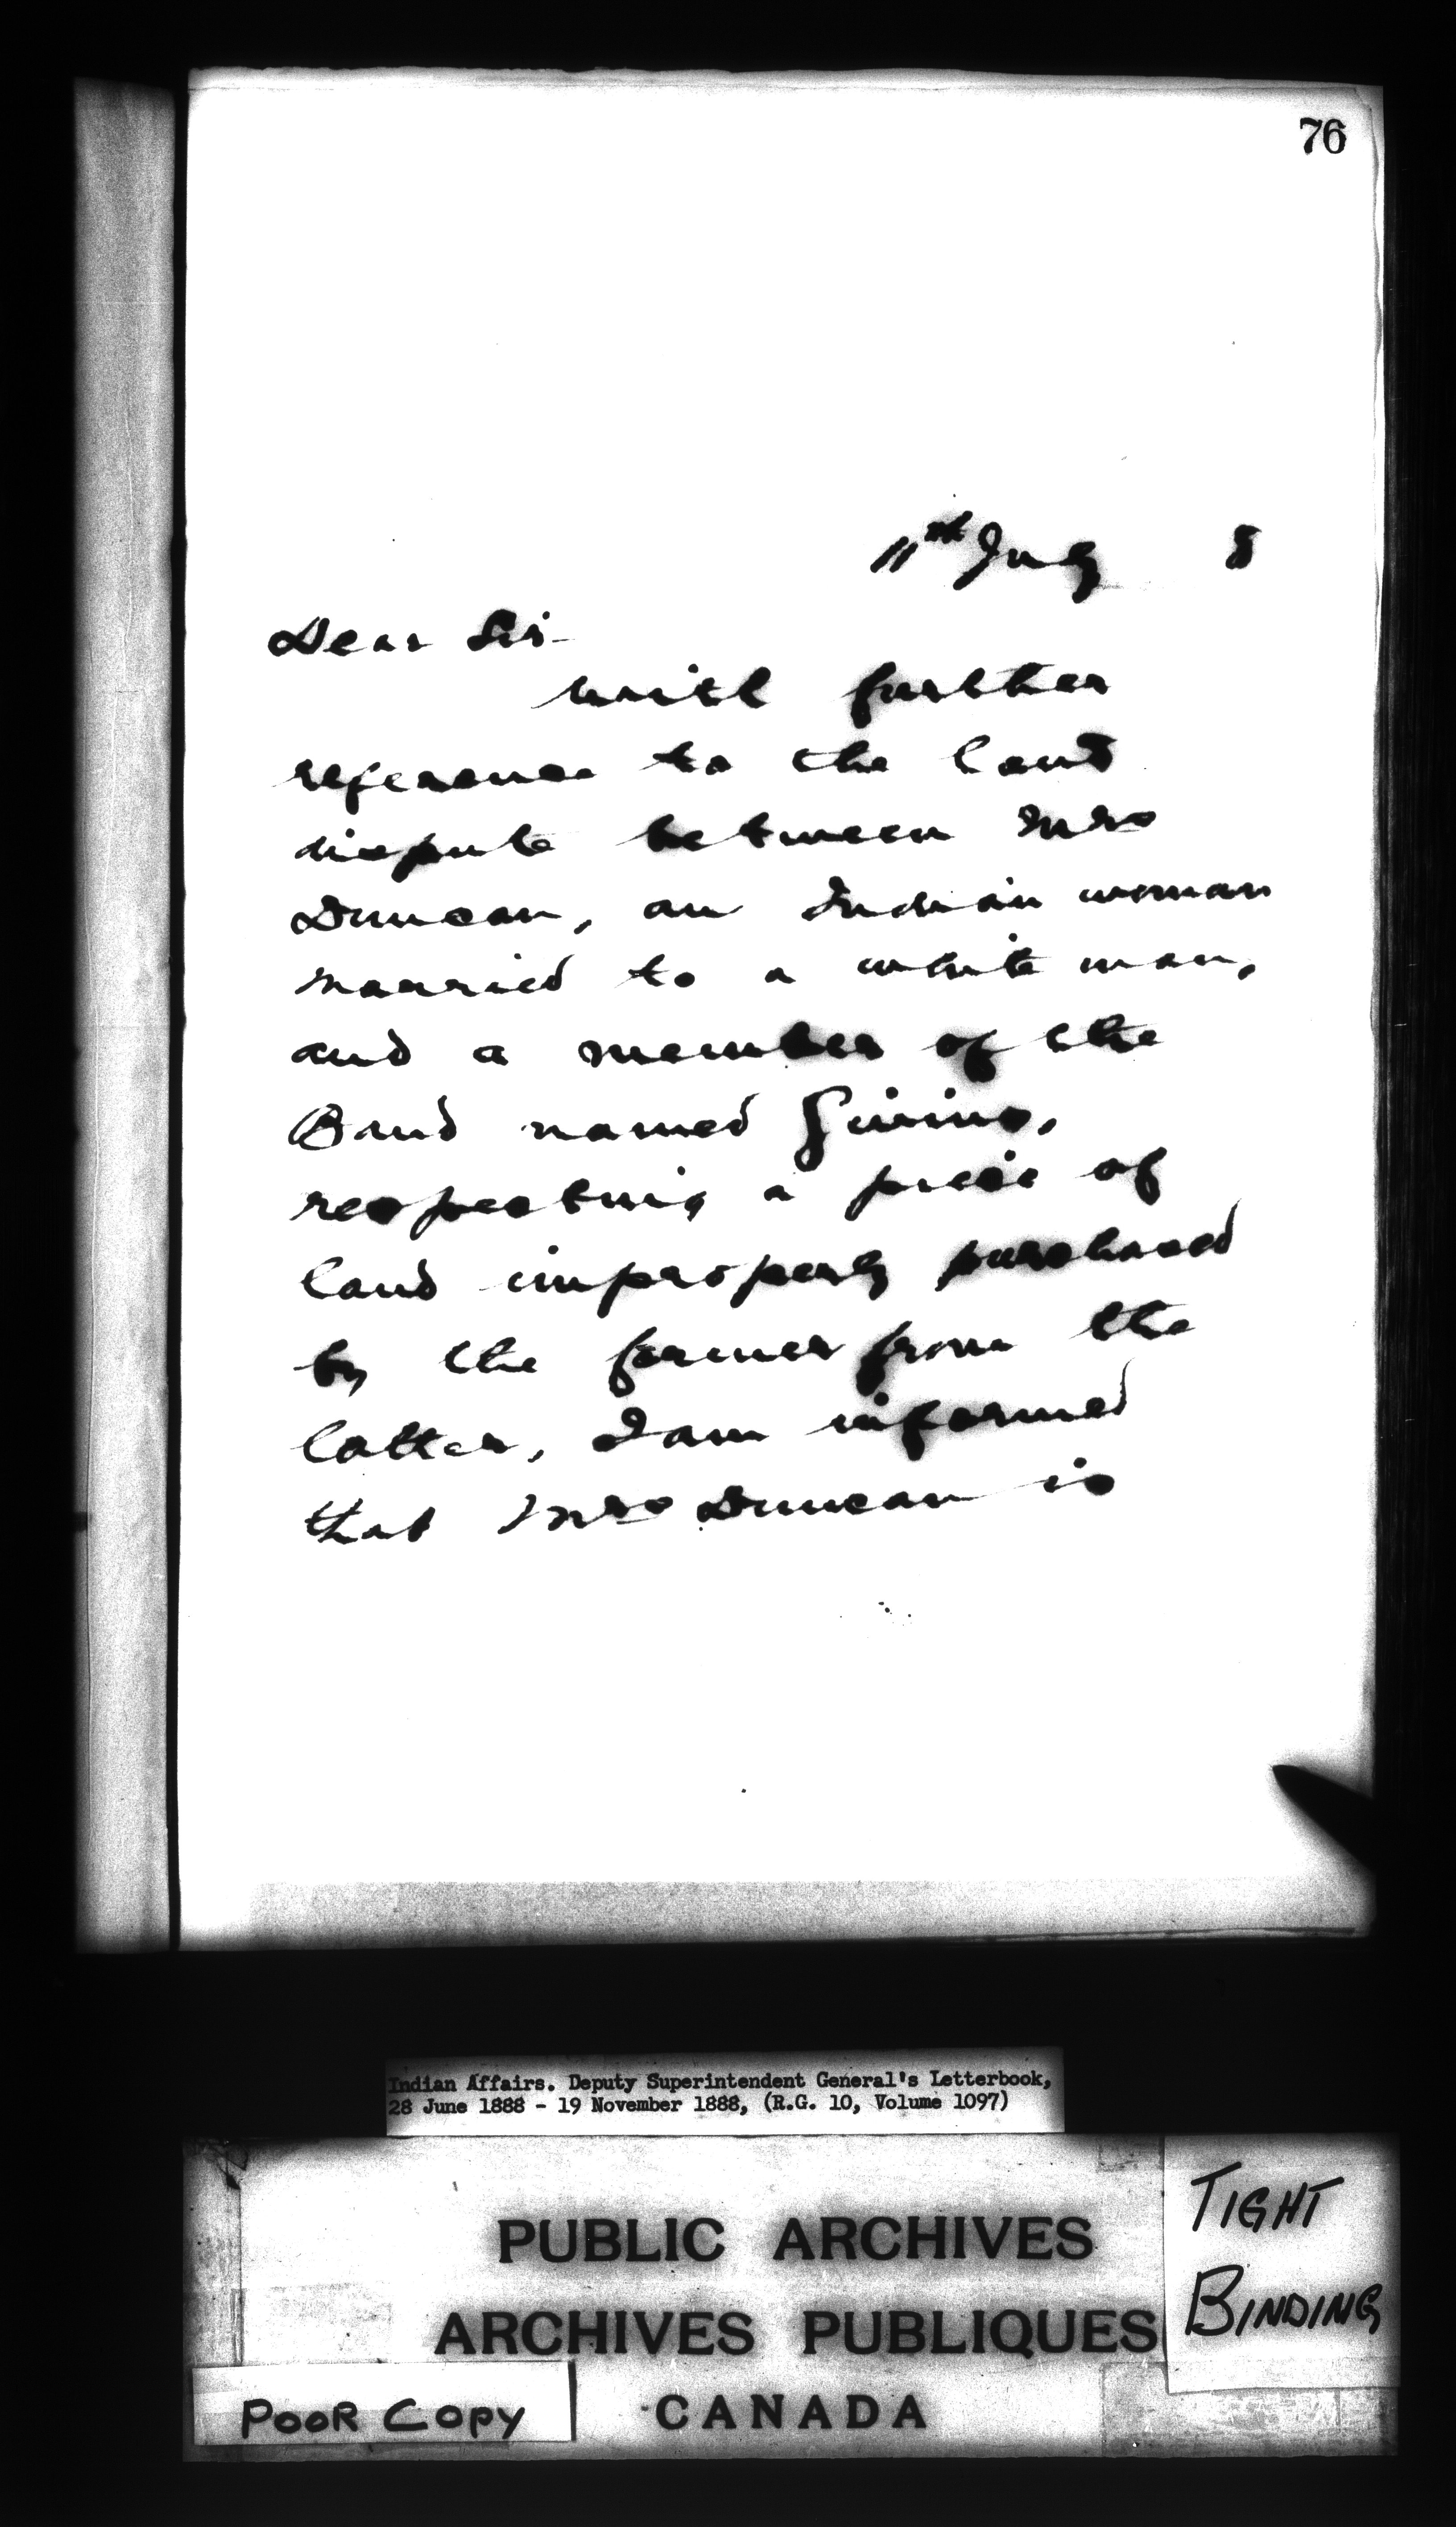 76
11th July 8
Dear Sir-
With further
reference to the land
dispute between Mrs
Duncan, an Indian woman
married to a white man,
and a member of the
Band named
respecting a piece of
land improperly purchased
by the former from the
latter, I am informed
that Mrs Duncan is
Indian Affairs. Deputy Superintendent General's Letterbook,
28 June 1888 - 19 November 1888, (R.G. 10, Volume 1097)
PUBLIC ARCHIVES
ARCHIVES PUBLIQUES
CANADA
TIGHT
BINDING
POOR COPY